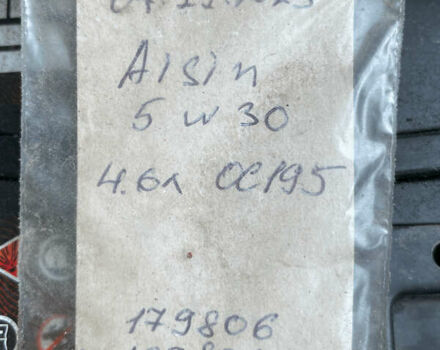 Aisin
5 w 30
4.6л OC195
179806